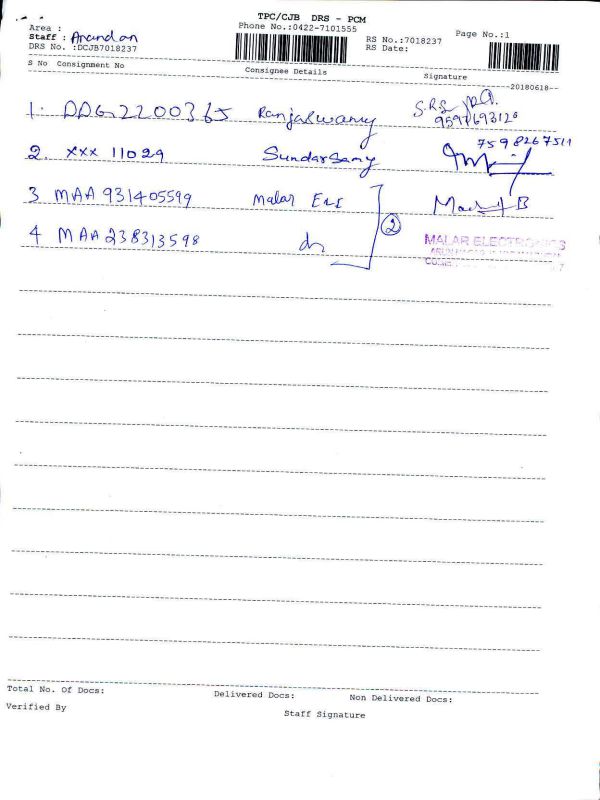 TPC/CJB DRS - PCM
Phone No.:0422-7101555
Area :
Staff : Anandan
DRS No. :DCJB7018237
RS No.:7018237
RS Date:
Page No.:1
S No Consignment No Consignee Details Signature
20180618
1. DDG2200365 Ranjaswamy
9597693120
2. xxx 11029 Sundarsamy 7598267511
3 MAA 931405599 Malar Ele
4 MAA 238313598 do
2
MALAR ELECTRONICS
Total No. Of Docs: Delivered Docs: Non Delivered Docs:
Verified By Staff Signature